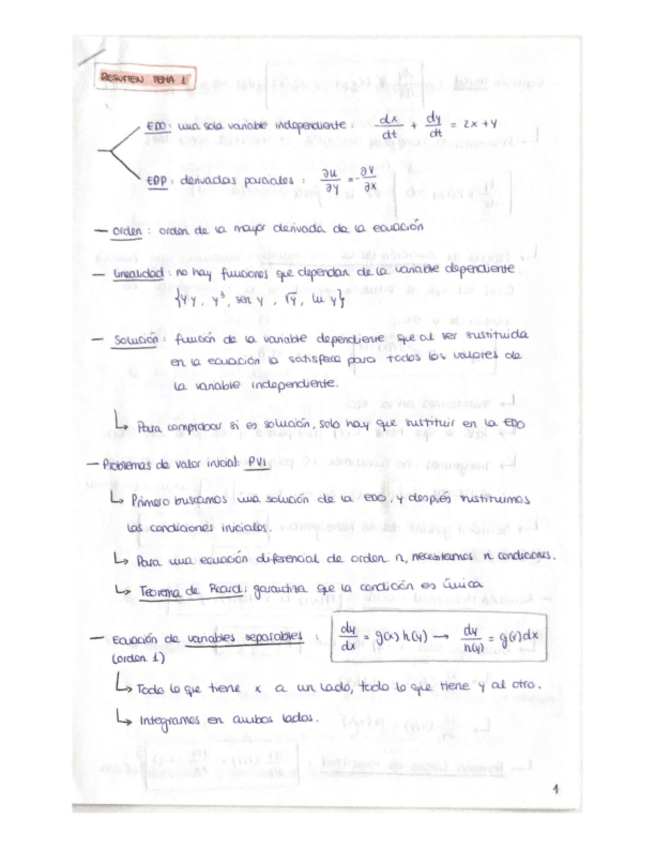 RESUMEN TEMA 1
EDO: una sola variable independiente: dx/dt + dy/dt = 2x + y
EDP: derivadas parciales: ∂u/∂y = -∂v/∂x
— Orden: orden de la mayor derivada de la ecuación
— Linealidad: no hay funciones que dependan de la variable dependiente.
y³, sen y, √y, ln y}
— Solución: función de la variable dependiente que al ser sustituida
en la ecuación la satisface para todos los valores de
la variable independiente.
↳ Para comprobar si es solución, solo hay que sustituir en la EDO
— Problemas de valor inicial: PVI
↳ Primero buscamos una solución de la EDO, y después sustituimos
las condiciones iniciales.
↳ Para una ecuación diferencial de orden n, necesitamos n condiciones.
↳ Teorema de Picard: garantiza que la condición es única
— Ecuación de variables separables: dy/dx = g(x) h(y) → dy/h(y) = g(x)dx
(orden 1)
↳ Todo lo que tiene x a un lado, todo lo que tiene y al otro.
↳ Integramos en ambos lados.
1